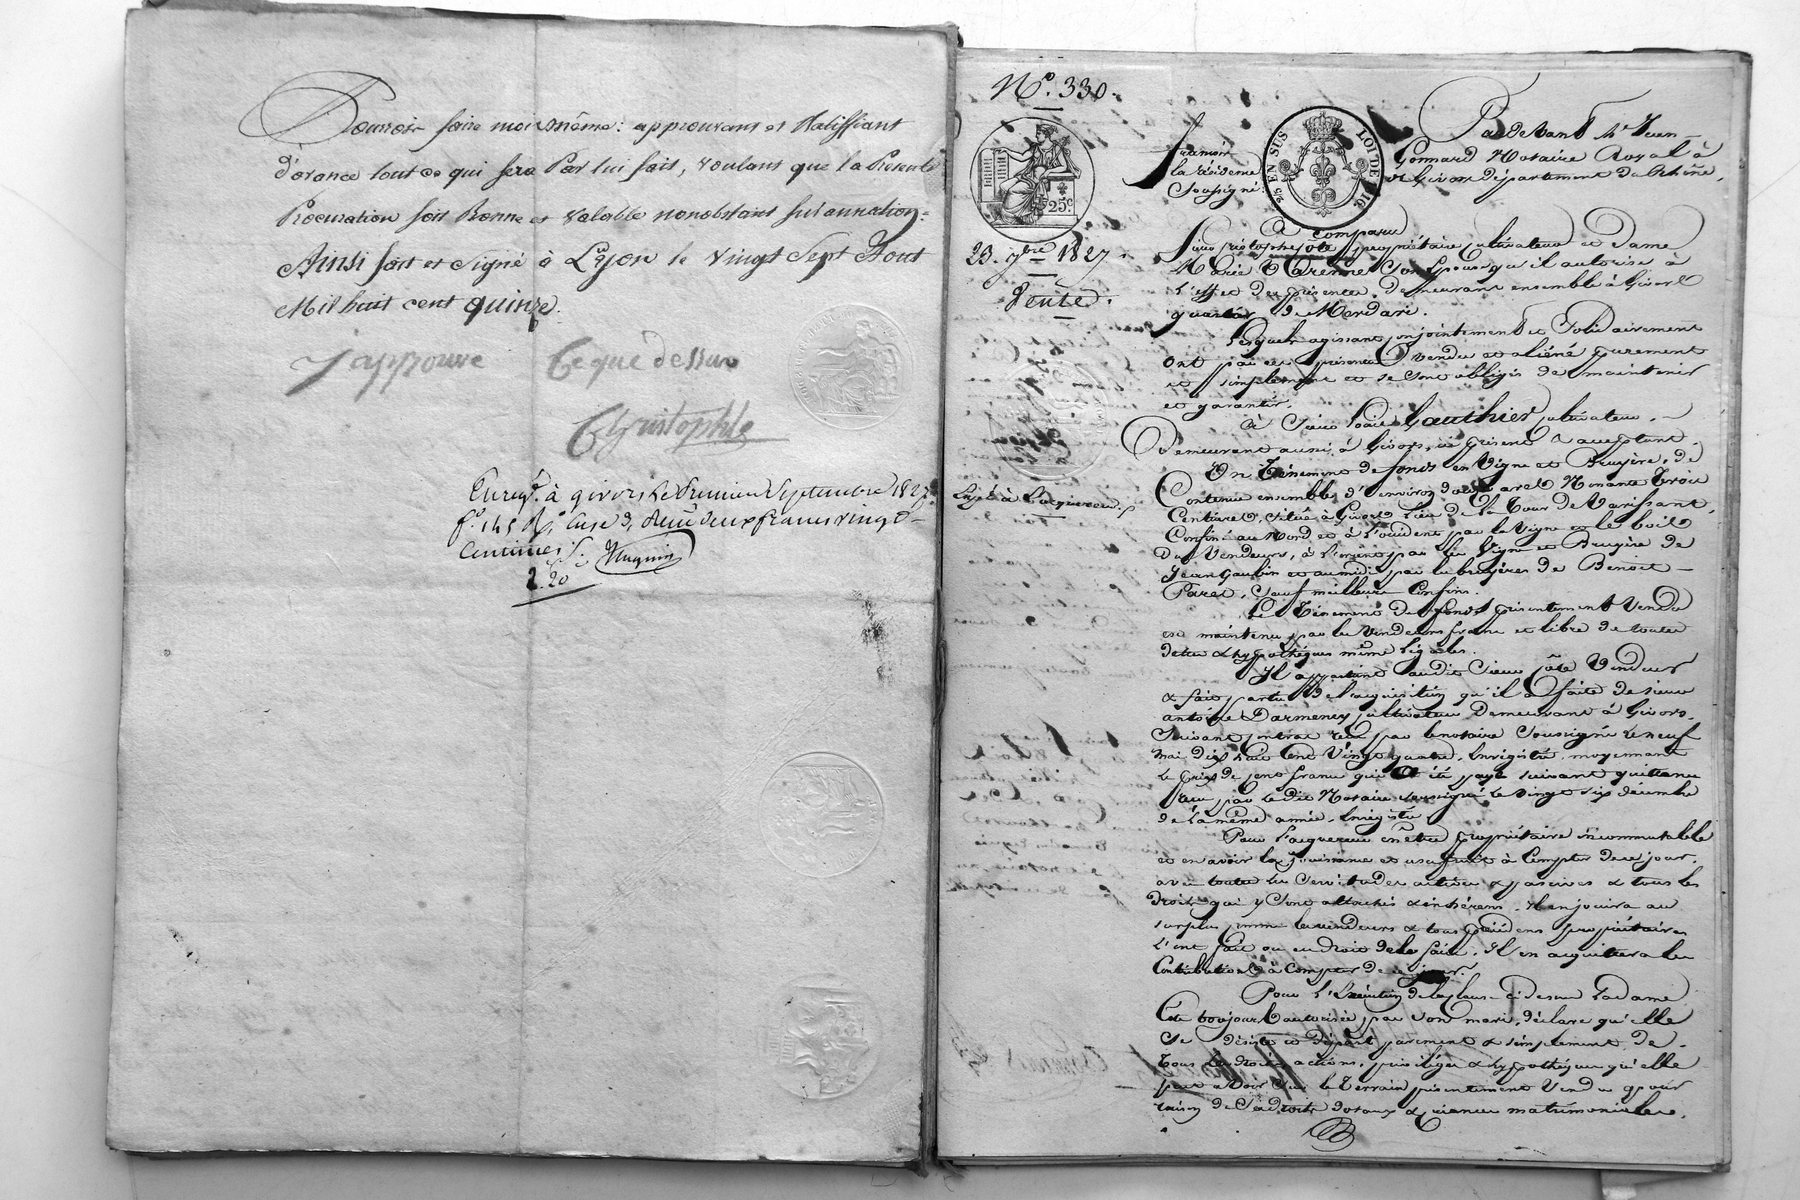 Pouvoir faire moi même: approuvant et Ratiffiant
d'avance tout ce qui sera Par lui fait, voulant que la Presente
Procuration soit Bonne et valable nonobstant surannation.
Ainsi fait et signé à Lyon le vingt Sept Aout
Mil huit cent quinze.
J'approuve Ce que dessus
Christophle
Enreg.é à givors le Premier Septembre 1827
f.o 145 R.o Case 3, Reçu deux francs vingt
Centimes
2.20
N.o 330.
25 EN SUS LOI DE
25 c
23. 7bre 1827
Vente.
Pardevant M.e Jean
François Gonnard Notaire Royal à
la résidence de Givors département du Rhône,
Soussigné:
A comparu
Sieur Côte propriétaire cultivateur et Dame
Marie Son Epouse qu'il autorise à
l'effet des présentes, demeurant ensemble à Givors
quartier de Montlard.
Lesquels agissant conjointement et Solidairement
ont par ces présentes vendu et aliéné purement
et simplement et se sont obligés de maintenir
et garantir.
à Sieur Gauthier cultivateur
Demeurant aussi à Givors, ici présent & acceptant.
Un Ténement de fonds en Vigne et Bruyère, de
Contenue ensemble d'environ ares Nonante trois
Centiares, situé à Givors lieu de la Tour de Varissant,
Confiné au Nord et à l'occident par la Vigne et le bois
Des Vendeurs, à l'orient par les Vigne et Bruyère de
Jean Gaubin et au midi par les bruyères de Benoit
Paret, Sauf meilleurs Confins.
Le Ténement de fonds présentement Vendu
est maintenu par les Vendeurs franc et libre de toutes
dettes & hypothèques même légales.
Il appartient audit Sieur Côte Vendeur
& fait partie de l'acquisition qu'il a faite de sieur
antoine Darmenay cultivateur Demeurant à Givors,
Suivant contrat reçu par le notaire Soussigné le neuf
mai dix huit cent Vingt quatre, Enrégistré, moyennant
le prix de cent francs qui a été payé suivant quittance
reçu par le dit Notaire soussigné le Vingt six décembre
de la même année, Enrégistré
Pour l'acquereur en être propriétaire incommutable
et en avoir la jouissance et usufruit à Compter de ce jour,
avec toutes les Servitudes actives & passives & tous les
droits qui y sont attachés & inhérens. Il en jouira au
surplus comme les vendeurs & tous précédens propriétaires
l'ont fait ou eu droit de le faire. Il en acquittera les
Contributions à Compter de ce jour.
Pour l'Exécution de la clause ci dessus La dame
Côte toujours autorisée par son mari, déclare qu'elle
Se désiste et départ purement & simplement de
Tous les droits, actions, privilèges & hypothèques qu'elle
peut avoir Sur le Terrain présentement Vendu pour
raison de Ses droits dotaux & créances matrimoniales.